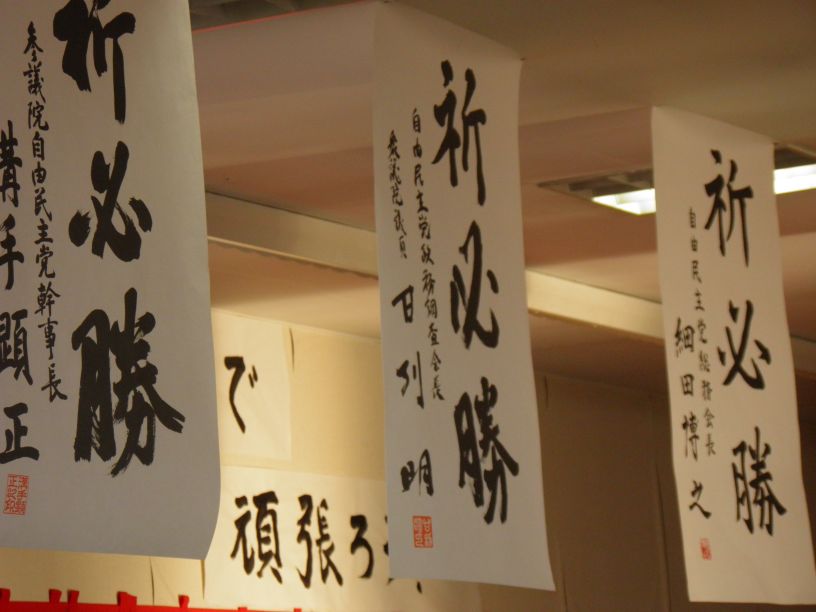 祈必勝
参議院自由民主党幹事長
溝手顕正
祈必勝
自由民主党政務調査会長
衆議院議員
甘利明
祈必勝
自由民主党総務会長
細田博之
で
頑張ろ